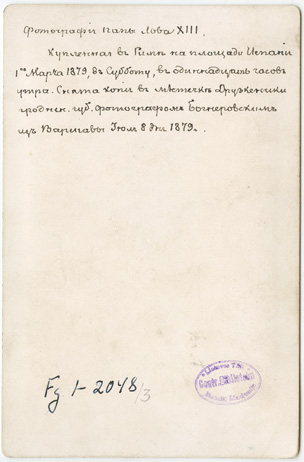 Фотографія Папы Льва XIII.
Купленная въ Римѣ на площади Испаніи
1го Марта 1879, въ Субботу, въ одиннадцать часовъ
утра. Снята копія въ мѣстечкѣ Друскеники
гродн. губ. фотографомъ
изъ Варшавы Іюля 8 дня 1879.
Fg 1-2048/3